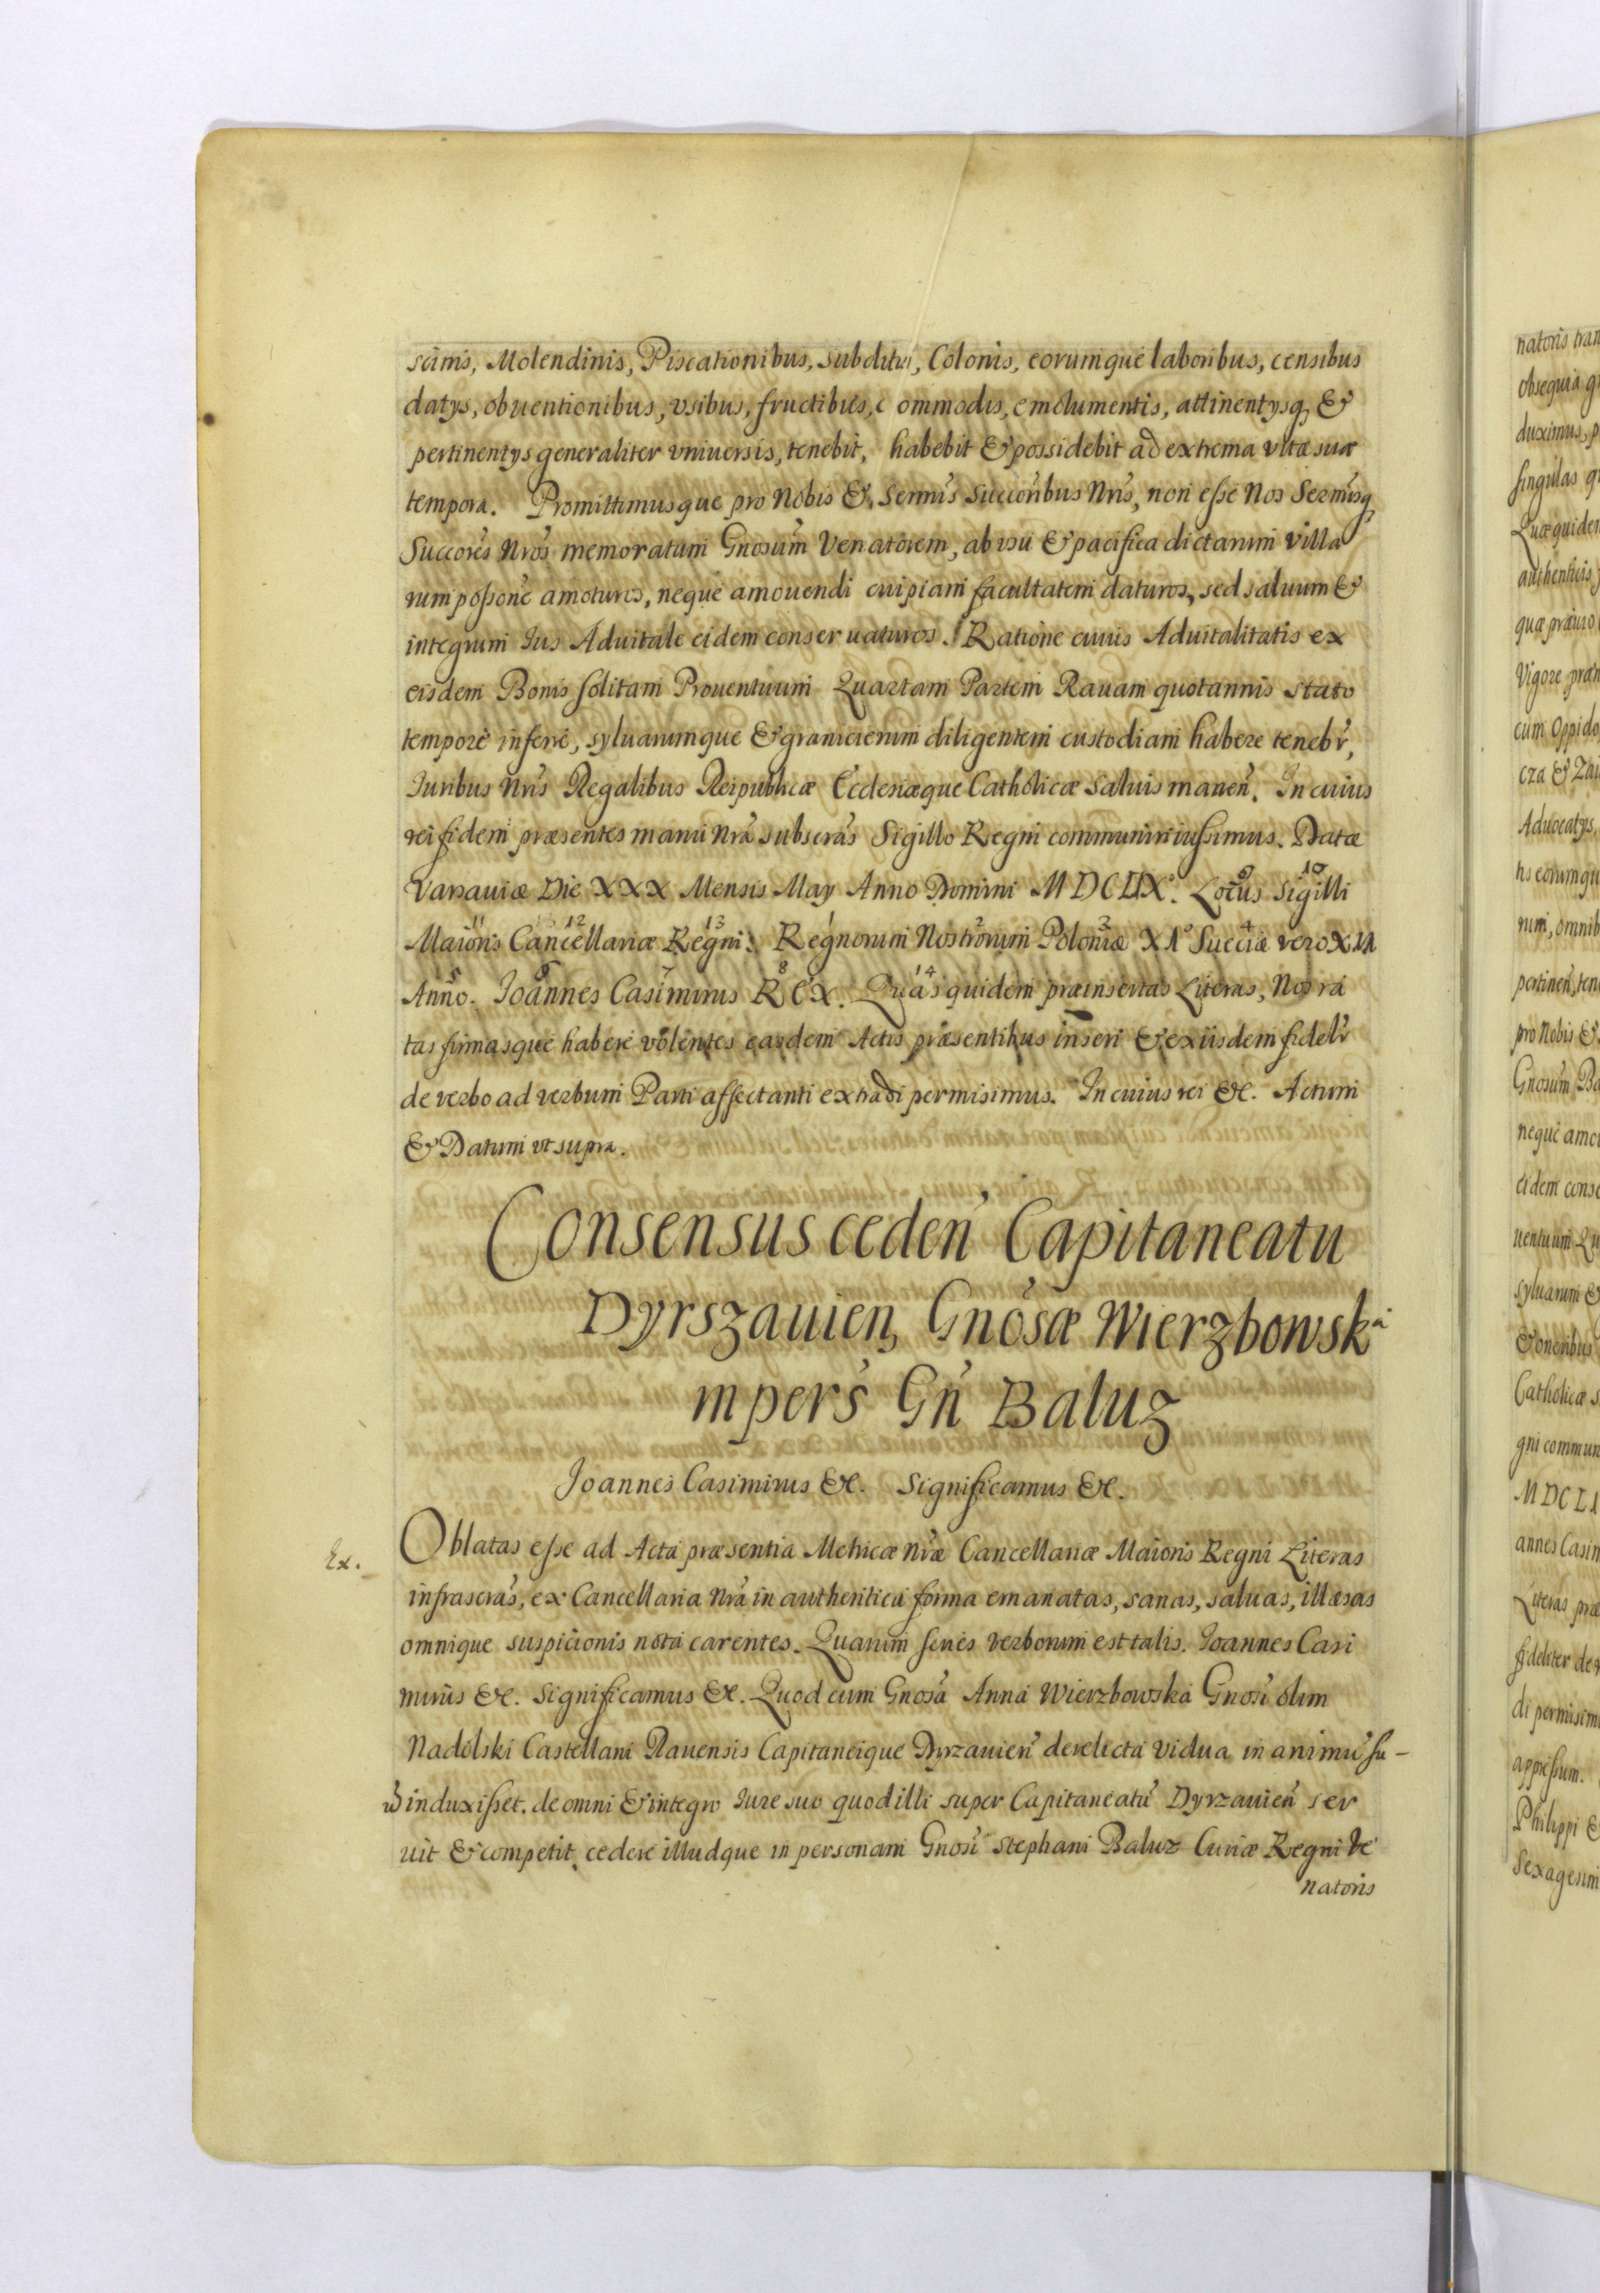 scinis, Molendinis, Piscationibus, subditis, Colonis, eorumque laboribus, censibus
datys, obuentionibus, vsibus, fructibus, c ommodis, emolumentis, attinentysq, &
pertinentys generaliter vniuersis, tenebit, habebit & possidebit ad extrema vitæ suæ
tempora. Promittimusque pro Nobis & Sermis Succoribus Nris, non esse Nos Sermisq
Succores Nros memoratum Gnosum Venatorem, ab usu & pacifica dictarum villa
rum possone amoturos, neque amouendi cuipiam facultatem daturos, sed saluum &
integrum Ius Aduitale eidem conser uaturos. Ratione cuius Aduitalitatis ex
eisdem Bonis solitam Prouentuum Quartam Partem Rauam quotannis stato
tempore inferre, syluarumque & granicierum diligentem custodiam habere tenebr,
Iuribus Nris Regalibus Reipublicæ Ecclesiæque Catholicæ saluis manen. In cuius
rei fidem præsentes manu Nra subscras Sigillo Regni communiri iussimus. Datæ
Varsauiæ Die XXX Mensis May Anno Domini MDCLIX. Locus 9 Sigilli 10
Maioris 11 Cancellariæ 12 Regni 13. Regnorum 1 Nostrorum 2 Poloniæ 3 XI Sueciæ 4 vero XII
Anno 5. Joannes 6 Casimirus 7 REX 8. Quas 14 quidem præinsertas Literas, Nos ra
tas firmasque habere volentes easdem Actis præsentibus inseri & ex iisdem fidelr
de verbo ad verbum Parti affectanti extradi permisimus. In cuius rei &c. Actum
& Datum vt supra.
Consensus ceden Capitaneatu
Dyrszauien, Gnosæ Wierzbowska
in pers Gn Baluz
Joannes Casimirus &c. Significamus &c.
Ex.
Oblatas esse ad Acta præsentia Metricæ Nræ Cancellariæ Maioris Regni Literas
infrascras, ex Cancellaria Nra in authentica forma emanatas, sanas, saluas, illæsas
omnique suspicionis nota carentes. Quarum series verborum est talis. Joannes Casi
mirus &c. Significamus &c. Quod cum Gnosa Anna Wierzbowska Gnosi olim
Nadolski Castellani Rauensis Capitaneique Dyrzauien derelicta vidua in animu su-
u induxisset. de omni & integro Iure suo quod illi super Capitaneatu Dyrzauien ser
uit & competit, cedere illudque in personam Gnosi Stephani Baluz Curiæ Regni Ve
natoris